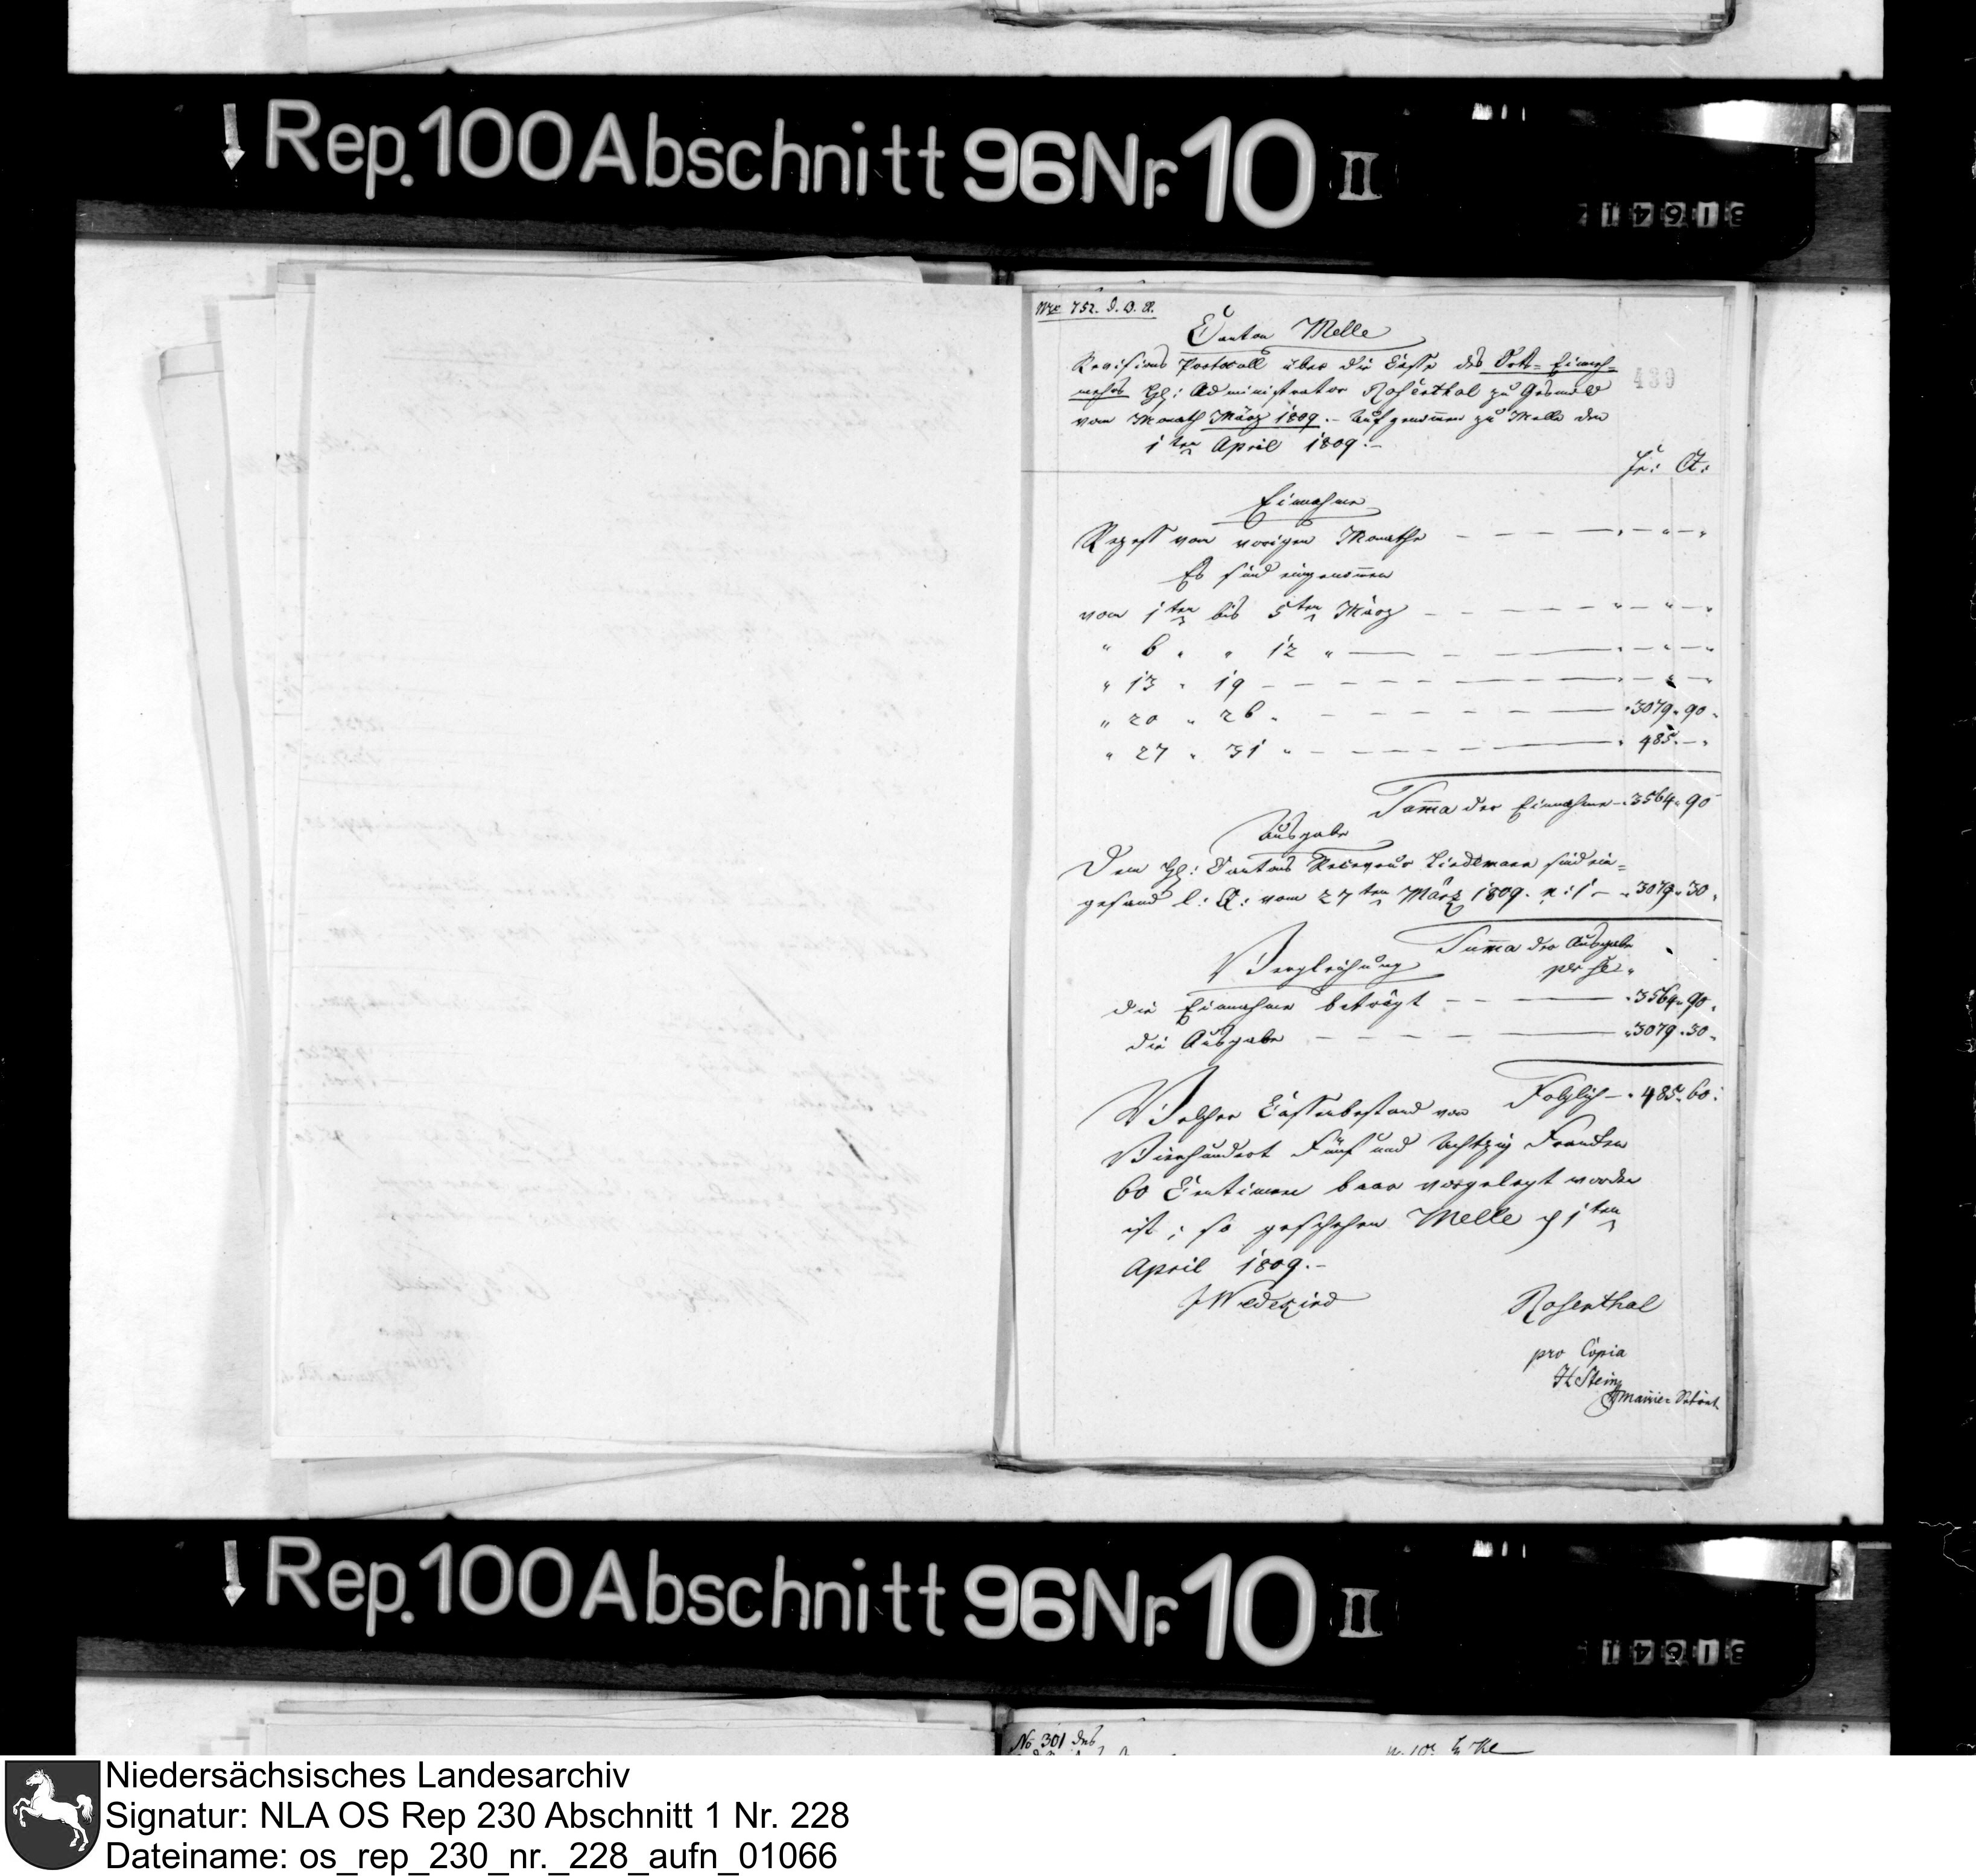 Rep. 100 Abschnitt 96 Nr. 10 II
3164 1
Nro 752. d. B. R.
Canton Melle
Revisions Protocoll über die Casse des Orts-Einneh=
439
mers H: Administrator Rosenthal zu Gesmold
vom Monath März 1809.- Aufgenom̅en zu Melle den
1ten April 1809.-
Fr: Ct:
Einnahme
Rezess vom vorigen Monathe
Es sind eingenom̅en
vom 1ten bis 5ten März
" 6 " " 12 "
" 13 " 19
" 20 " 26 " 3079 " 90
" 27 " 31 " 485 " -
Sum̅a der Einnahme 3564 " 90
Ausgabe
Dem H: Cantons Receveur Lindemann sind ein=
gesand l: Q: vom 27ten März 1809. n: 1 3079 " 30
Sum̅a der Ausgabe
Vergleichung per se
die Einnahme beträgt 3564 " 90
die Ausgabe 3079 " 30
Folglich 485 " 60
Welcher Cassenbestand von
Vierhundert Fünf und Achtzig Franken
60 Centimen baar vorgelegt worden
ist; so geschehen Melle d 1ten
April 1809.-
Wedekind Rosenthal
pro Copia
H Stein
Maírie-
Rep. 100 Abschnitt 96 Nr. 10 II
3164 1
No 301 des
Niedersächsisches Landesarchiv
Signatur: NLA OS Rep 230 Abschnitt 1 Nr. 228
Dateiname: os_rep_230_nr._228_aufn_01066